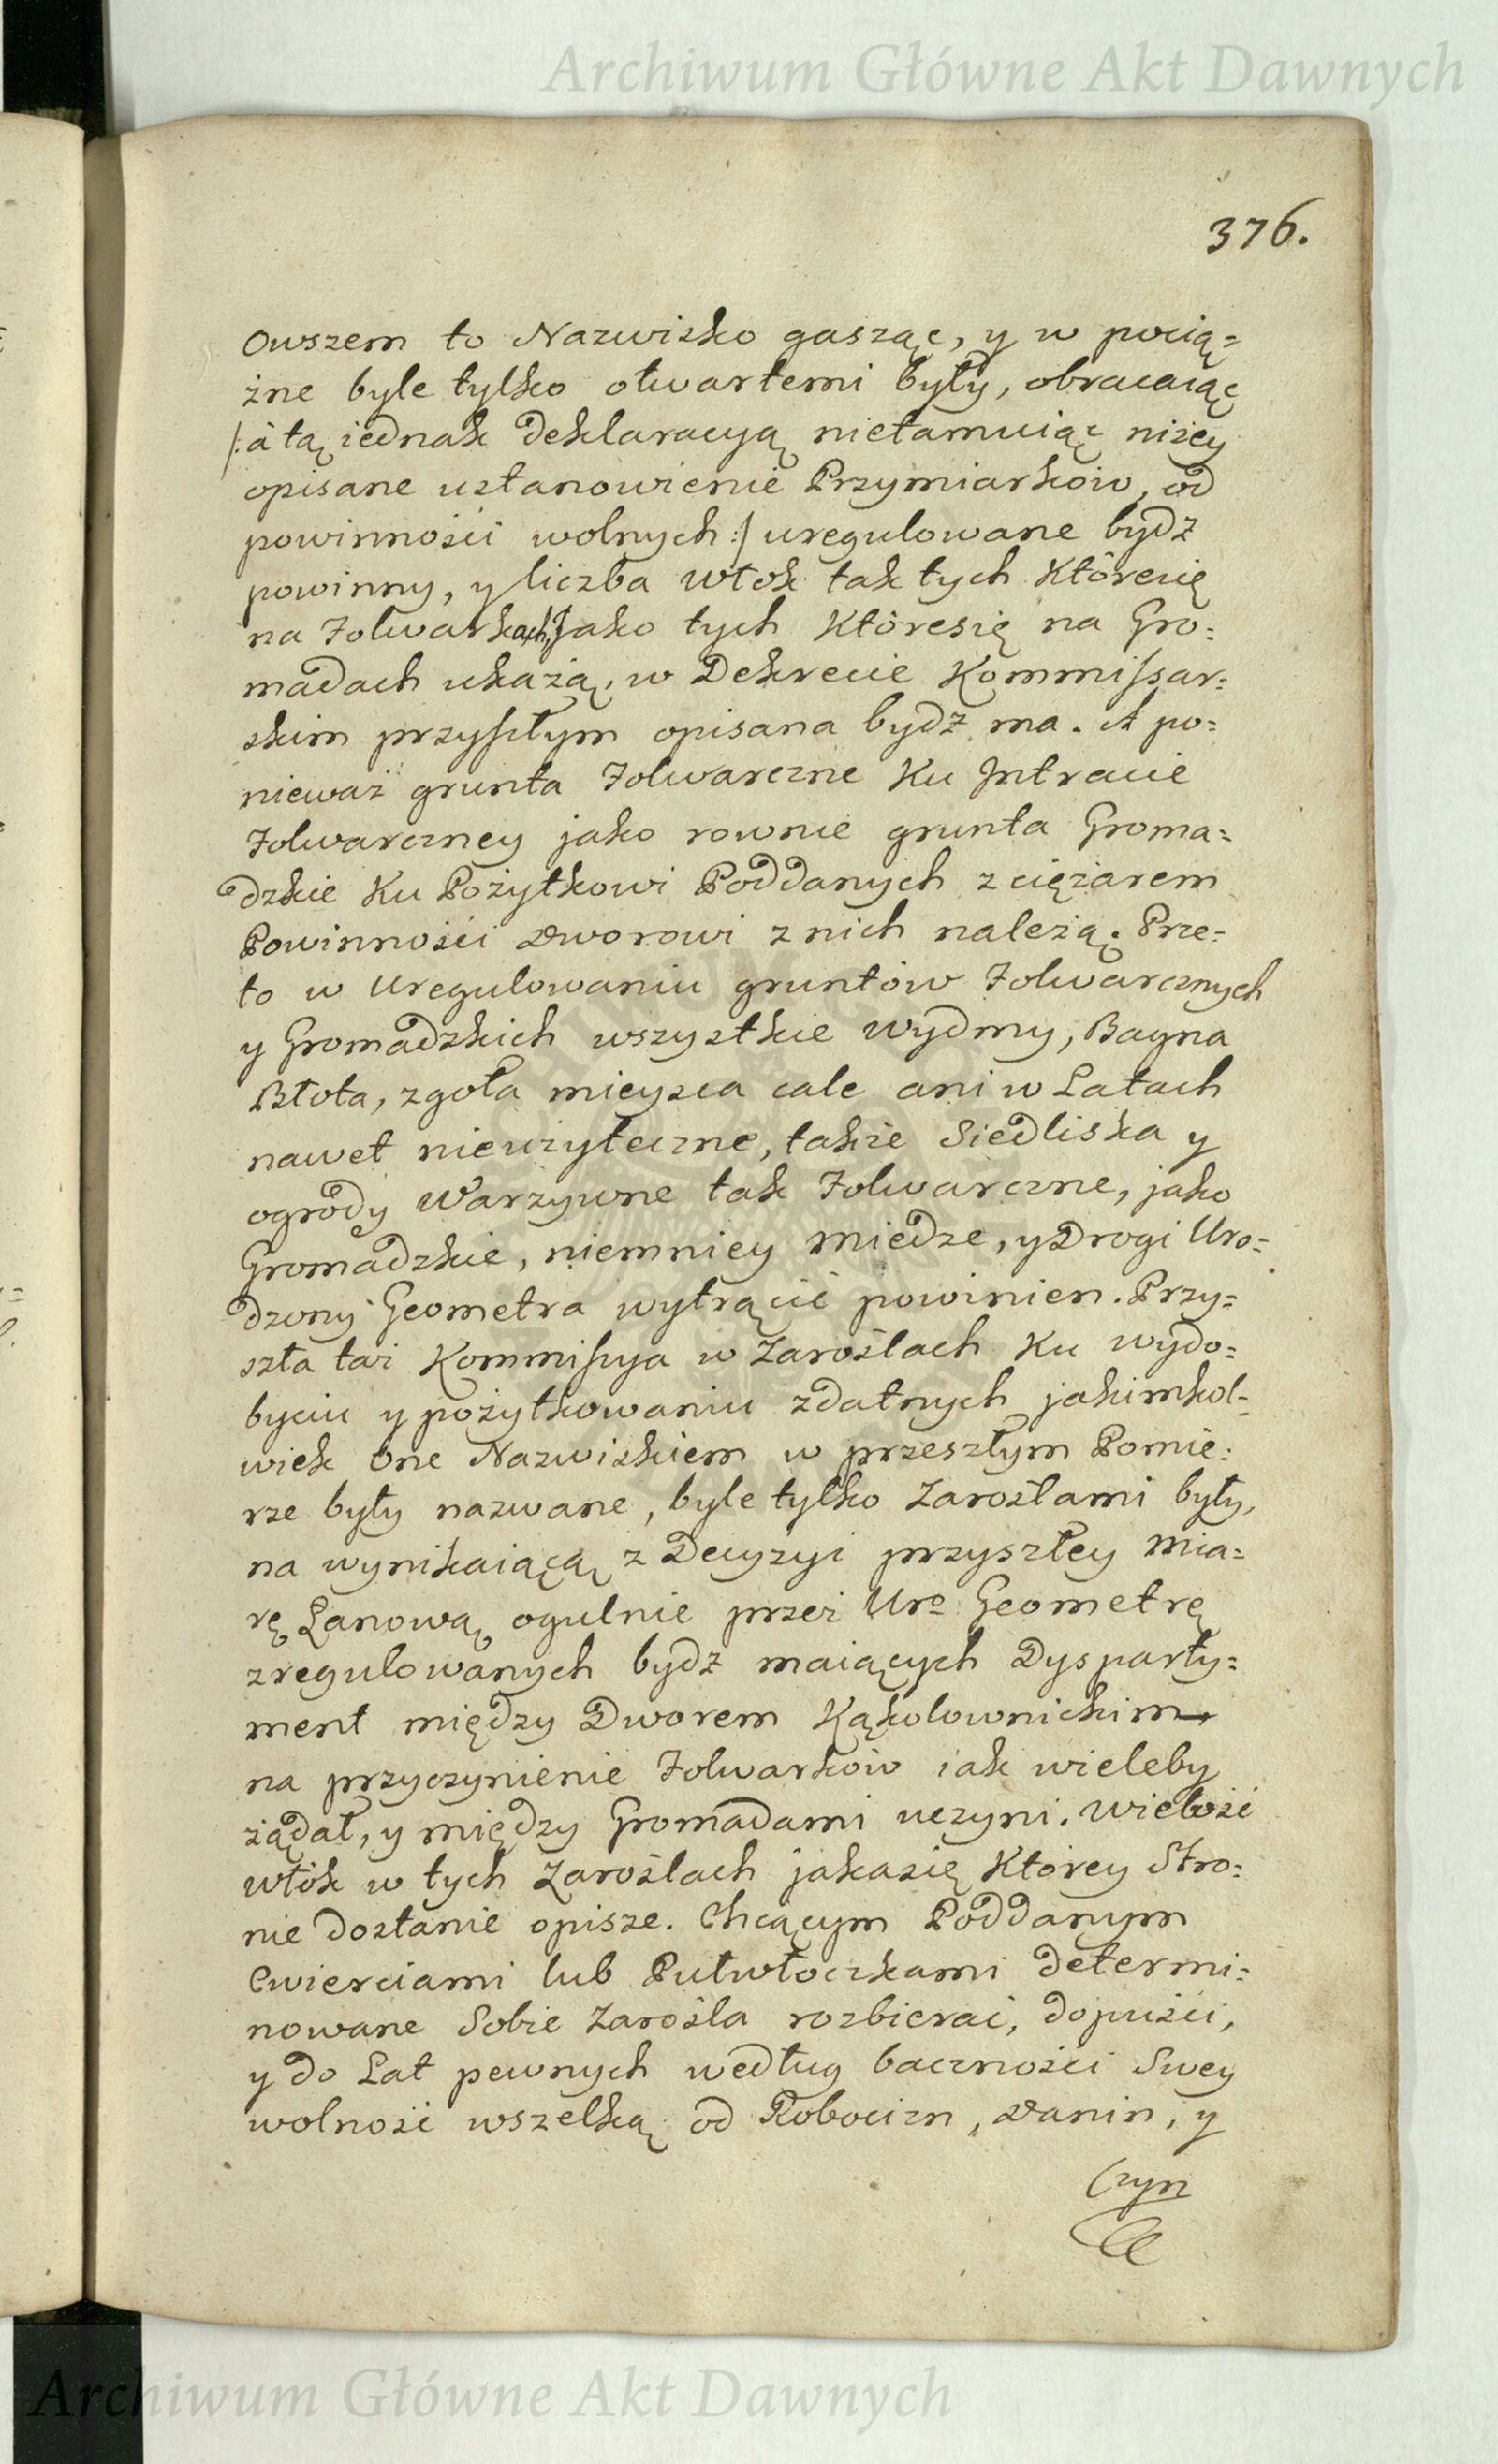 Archiwum Główne Akt Dawnych
376.
owszem to Nazwisko gasząc, y w pocią=
żne byle tylko otwartemi były, obracaiąc
/: à tą iednak deklaracyą nietamuiąc niżey
opisane ustanowienie Przymiarkow, od
powinności wolnych :/ uregulowane bydz
powinny, y liczba włok tak tych któresię
na Folwarkach, jako tych któresię na Gro=
madach ukażą, w Dekrecie Kommissar=
skim przyszłym opisana bydz ma. A po=
nieważ grunta Folwarczne Ku Jntracie
Folwarczney jako rownie grunta Groma=
dzkie Ku Pożytkowi Poddanych z ciężarem
Powinności Dworowi z nich należą. Prze=
to w Uregulowaniu gruntów Folwarcznych
y Gromadzkich wszystkie wydmy, Bagna
Błota, zgoła mieysca cale ani w Latach
nawet nieużyteczne, także Siedliska y
ogrody Warzywne tak Folwarczne, jako
Gromadzkie, niemniey miedze, y Drogi Uro=
dzony Geometra wytrącić powinien. Przy=
szła taż Kommissya w Zaroślach Ku wydo=
byciu y pożytkowaniu zdatnych jakimkol=
wiek One Nazwiskiem w przeszłym Pomie=
rze były nazwane, byle tylko Zaroslami były,
na wynikaiącą z Decyzyi przyszłey Mia=
rę Łanową ogulnie przez Uro Geometrę
zregulowanych bydz maiących Dysparty=
ment między Dworem Kąkolownickim
na przyczynienie Folwarków iak wieleby
żądał, y między Gromadami uczyni. Wielość
włók w tych Zaroślach jakasię Ktorey Stro=
nie dostanie opisze. Chcącym Poddanym
Cwierciami lub Pułwłoczkami determi=
nowane Sobie Zarosla rozbierać, dopuści,
y do Lat pewnych według baczności Swey
wolność wszelką od Robocizn, Danin, y
Czyn
Archiwum Główne Akt Dawnych